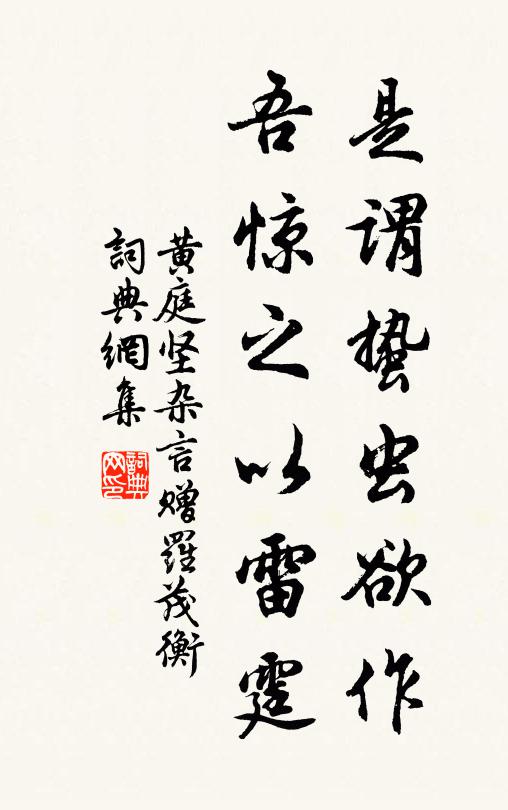 是謂蟄虫欲作
吾惊之以雷霆
黄庭坚杂言赠羅茂衡
詞典網集
詞典網印